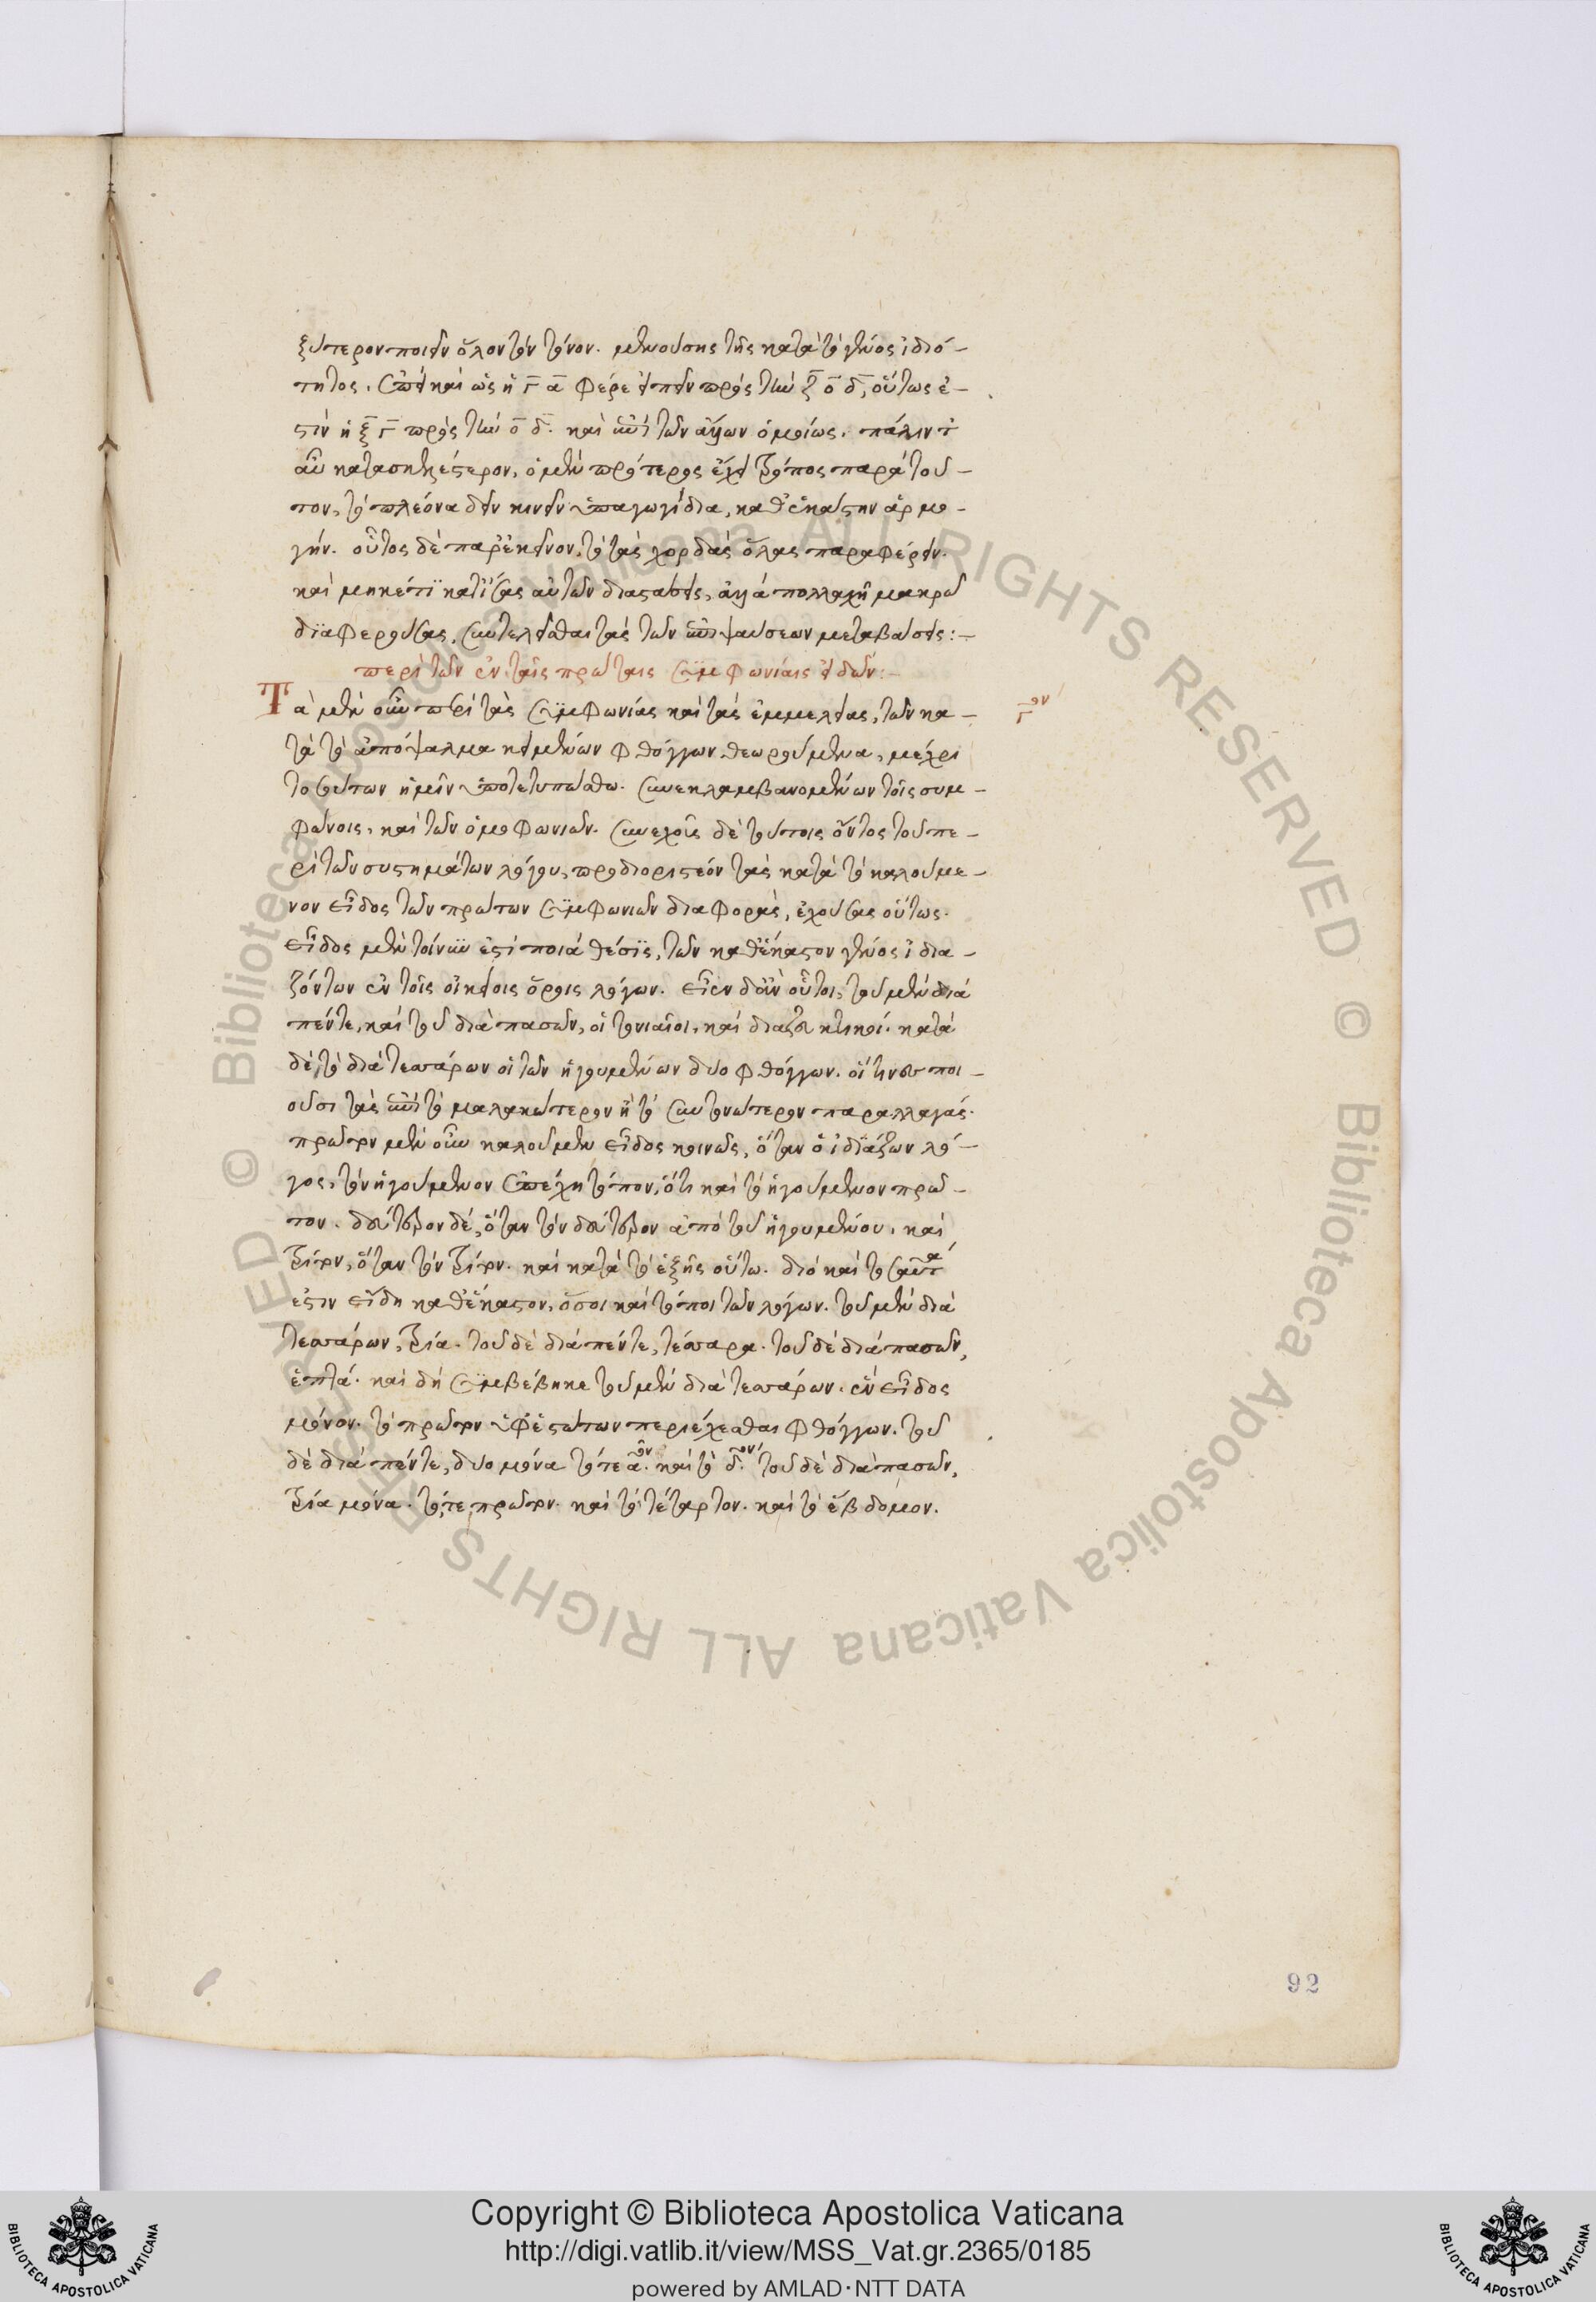 ξύτερον ποιεῖν ὅλον τὸν τόνον. μενούσης τῆς κατὰ τὸ γένος ἰδιό-
τητος. ἐπεὶ καὶ ὡς ἡ γ α φέρε εἰπεῖν πρὸς τὴν ξ ο δ, οὕτως ἐ-
στὶν ἡ ξ γ πρὸς τὴν ο δ. καὶ ἐπὶ τῶν ἄλλων ὁμοίως. πάλιν
ἂν κατασκευὴ ἕτερον, ὁ μὲν πρότερος ἔχει τρόπος παρὰ τοῦ-
τον, τὸ πλέονα δεῖν κινεῖν ὑπαγωγίδια, καθ' ἑκάστην ἁρμο-
γήν. οὗτος δὲ παρ' ἐκεῖνον, τὸ τὰς χορδὰς ὅλας παραφέρειν.
καὶ μηκέτι κατ' ἴσας αὐτῶν διαστάσεις, ἀλλὰ πολλαχῆ μακρῶ
διαφερούσας, συντελεῖσθαι τὰς τῶν ἐπιψαύσεων μεταβάσεις:-
περὶ τῶν ἐν ταῖς πρώταις συμφωνίαις εἰδῶν:-
Τὰ μὲν οὖν περὶ τὰς συμφωνίας καὶ τὰς ἐμμελείας, τῶν κα-
γον
τὰ τὸ ἀπόψαλμα κειμένων φθόγγων θεωρούμενα, μέχρι
τοσούτων ἡμῖν ὑποτετυπώσθω. συνεκλαμβανομένων τοῖς συμ-
φώνοις, καὶ τῶν ὁμοφωνιῶν. συνεχοῦς δὲ τούτοις ὄντος τοῦ πε-
ρὶ τῶν συστημάτων λόγου, προδιοριστέον τὰς κατὰ τὸ καλούμε-
νον εἶδος τῶν πρώτων συμφωνιῶν διαφοράς, ἐχούσας οὕτως.
εἶδος μὲν τοίνυν ἐστὶ ποιὰ θέσις, τῶν καθ' ἕκαστον γένος ἰδια-
ζόντων ἐν τοῖς οἰκείοις ὅροις λόγων. εἶεν δ' ἂν οὗτοι, τοῦ μὲν διὰ
πέντε, καὶ τοῦ διὰ πασῶν, οἱ τονιαῖοι, καὶ διαζευκτικοί. κατὰ
δὲ τὸ διὰ τεσσάρων οἱ τῶν ἡγουμένων δύο φθόγγων. οἵτινες ποι-
οῦσι τὰς ἐπὶ τὸ μαλακώτερον ἢ τὸ συντονώτερον παραλλαγάς.
πρῶτον μὲν οὖν καλοῦμεν εἶδος κοινῶς, ὅταν ὁ ἰδιάζων λό-
γος, τὸν ἡγούμενον ἐπέχη τόπον, ὅτι καὶ τὸ ἡγούμενον πρῶ-
τον. δεύτερον δέ, ὅταν τὸν δεύτερον ἀπὸ τοῦ ἡγουμένου. καὶ
τρίτον, ὅταν τὸν τρίτον. καὶ κατὰ τὸ ἑξῆς οὕτω. διὸ καὶ τοσαῦτα
ἐστιν εἴδη καθ' ἕκαστον, ὅσοι καὶ τόποι τῶν λόγων. τοῦ μὲν διὰ
τεσσάρων, τρία. τοῦ δὲ διὰ πέντε, τέσσαρα. τοῦ δὲ διὰ πασῶν,
ἑπτά. καὶ δὴ συμβέβηκε τοῦ μὲν διὰ τεσσάρων. ἓν εἶδος
μόνον. τὸ πρῶτον ὑφ' ἑστώτων περιέχεσθαι φθόγγων. τοῦ
δὲ διὰ πέντε, δύο μόνα τό τε αον. καὶ τὸ δον. τοῦ δὲ διὰ πασῶν,
τρία μόνα. τό, τε πρῶτον. καὶ τὸ τέταρτον. καὶ τὸ ἕβδομον.
92
Copyright © Biblioteca Apostolica Vaticana
http://digi.vatlib.it/view/MSS_Vat.gr.2365/0185
powered by AMLAD·NTT DATA